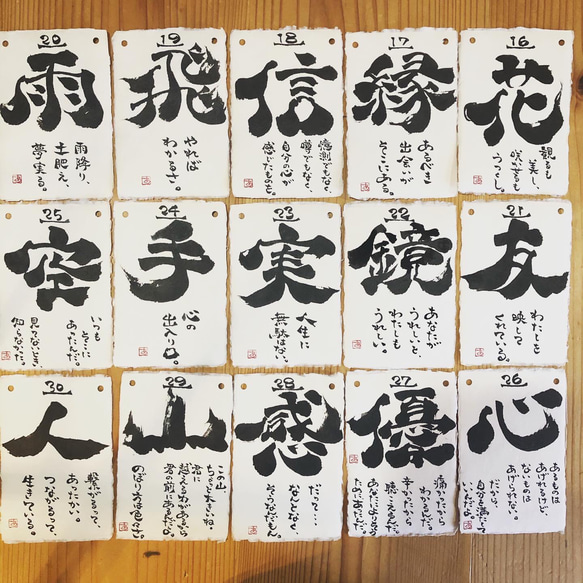 16
花
観るも
美し、
咲かすも
うつくし。
17
縁
あるべき
出会いが
そこにある。
18
信
憶測でもなく
噂でもなく、
自分の心が
感じたものを。
19
飛
やれば
わかるさ。
20
雨
雨降り、
土肥え、
夢実る。
21
友
わたしを
映して
くれている。
22
鏡
あなたが
うれしいと
わたしも
うれしい。
23
実
人生に
無駄はない。
24
手
心の
出入り口。
25
空
いつも
そこに
あったんだ。
見てないとき
知らなかった。
26
心
あるものは
あげれるけど、
ないものは
あげられない。
だから、
自分を満たして
いいんだよ。
27
優
痛かったから
わかるんだ。
辛かったから
聴こえるんだ。
あなたによりそう
ためにあったんだ。
28
感
だって…
なんとなく、
そうなんだもん。
29
山
この山
ちょっときついね。
君に
越える力があるから
君の前にあるんだよ。
のぼり方は色々さ。
30
人
繋がるって、
あったかい。
つながるって、
生きている。